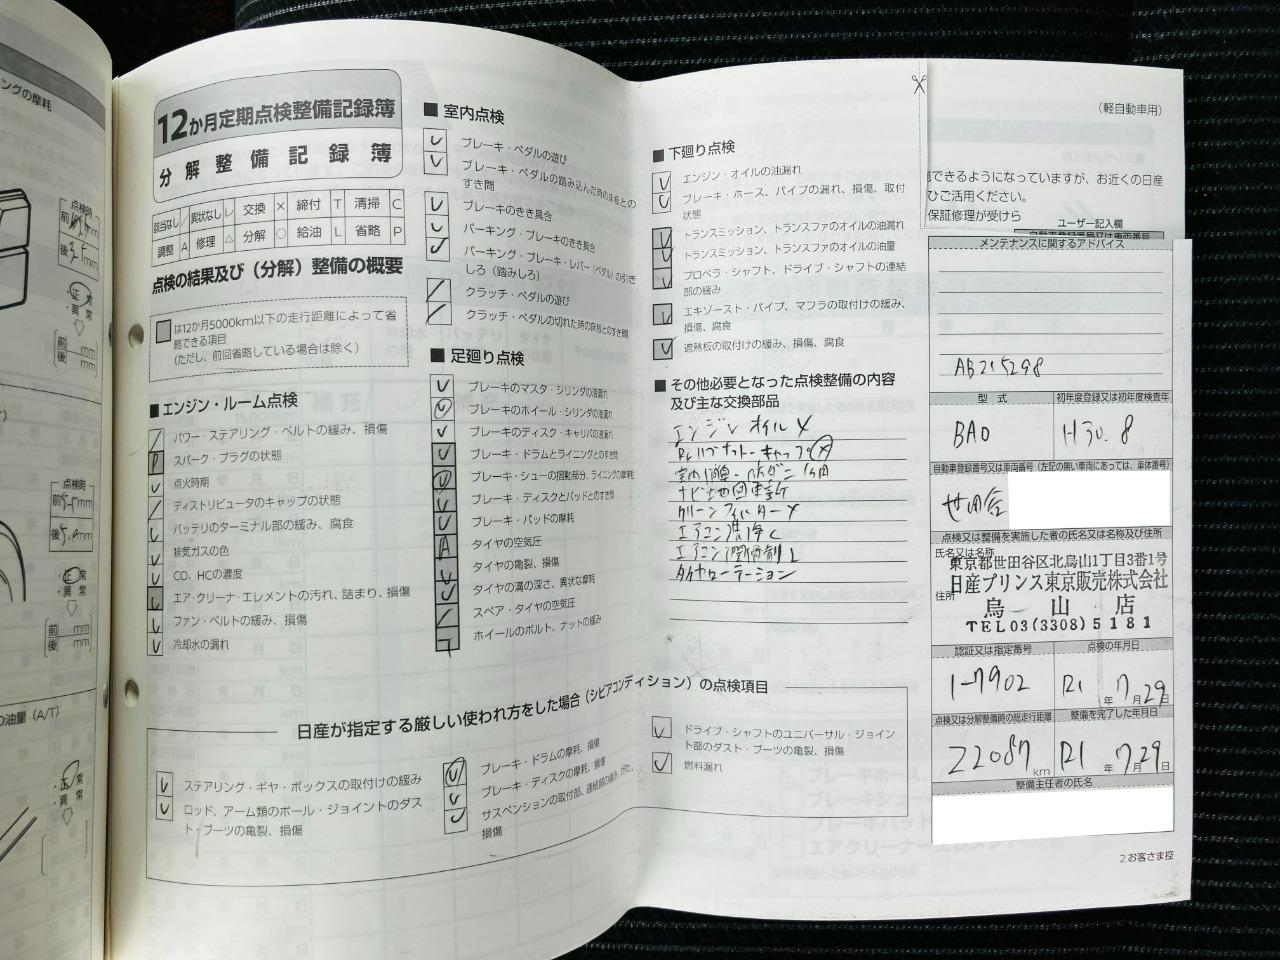 ングの摩耗
点検時
前
mm
後3.5
mm
正常
・異常
前 mm
後 mm
点検時
前5.5mm
後5.0mm
正常
・異常
前 mm
後 mm
の油量（A/T）
正常
・異常
12か月定期点検整備記録簿
分解整備記録簿
該当なし / 異状なし レ 交換 × 締付 T 清掃 C
調整 A 修理 △ 分解 ○ 給油 L 省略 P
点検の結果及び（分解）整備の概要
は12か月5000km以下の走行距離によって省
略できる項目
（ただし、前回省略している場合は除く）
■ エンジン・ルーム点検
パワー・ステアリング・ベルトの緩み、損傷
P スパーク・プラグの状態
点火時期
ディストリビュータのキャップの状態
バッテリのターミナル部の緩み、腐食
排気ガスの色
CO、HCの濃度
エア・クリーナ・エレメントの汚れ、詰まり、損傷
ファン・ベルトの緩み、損傷
冷却水の漏れ
■ 室内点検
ブレーキ・ペダルの遊び
ブレーキ・ペダルの踏み込んだ時の床板との
すき間
ブレーキのきき具合
パーキング・ブレーキのきき具合
パーキング・ブレーキ・レバー（ペダル）の引き
しろ（踏みしろ）
クラッチ・ペダルの遊び
クラッチ・ペダルの切れた時の床板とのすき間
■ 足廻り点検
ブレーキのマスタ・シリンダの液漏れ
ブレーキのホイール・シリンダの液漏れ
ブレーキのディスク・キャリパの液漏れ
ブレーキ・ドラムとライニングとのすき間
ブレーキ・シューの摺動部分、ライニングの摩耗
ブレーキ・ディスクとパッドとのすき間
ブレーキ・パッドの摩耗
A タイヤの空気圧
タイヤの亀裂、損傷
タイヤの溝の深さ、異状な摩耗
スペア・タイヤの空気圧
T ホイールのボルト、ナットの緩み
■ 下廻り点検
エンジン・オイルの油漏れ
ブレーキ・ホース、パイプの漏れ、損傷、取付
状態
トランスミッション、トランスファのオイルの油漏れ
トランスミッション、トランスファのオイルの油量
プロペラ・シャフト、ドライブ・シャフトの連結
部の緩み
エキゾースト・パイプ、マフラの取付けの緩み、
損傷、腐食
遮熱板の取付けの緩み、損傷、腐食
■ その他必要となった点検整備の内容
及び主な交換部品
エンジン オイル ×
ナット-キャップ
室内
ナビ地図更新
クリーンフィルター ×
エアコン洗浄 C
エアコン潤滑剤 L
タイヤローテーション
日産が指定する厳しい使われ方をした場合（シビアコンディション）の点検項目
ステアリング・ギヤ・ボックスの取付けの緩み
ロッド、アーム類のボール・ジョイントのダス
ト・ブーツの亀裂、損傷
ブレーキ・ドラムの摩耗、損傷
ブレーキ・ディスクの摩耗、損傷
サスペンションの取付部、連結部の緩み、がた、
損傷
ドライブ・シャフトのユニバーサル・ジョイン
ト部のダスト・ブーツの亀裂、損傷
燃料漏れ
（軽自動車用）
できるようになっていますが、お近くの日産
ひご活用ください。
保証修理が受けら
ユーザー記入欄
自動車登録番号又は車両番号
メンテナンスに関するアドバイス
AB215298
型 式
初年度登録又は初年度検査年
BA0
H30.8
自動車登録番号又は車両番号（左記の無い車両にあっては、車体番号）
世田谷
点検又は整備を実施した者の氏名又は名称及び住所
氏名又は名称
東京都世田谷区北烏山1丁目3番1号
日産プリンス東京販売株式会社
住所
烏 山 店
TEL03(3308)5181
認証又は指定番号
点検の年月日
1-7902
R1 年 7 月 29 日
点検又は分解整備時の総走行距離
整備を完了した年月日
22087 km
R1 年 7 月 29 日
整備主任者の氏名
2.お客さま控